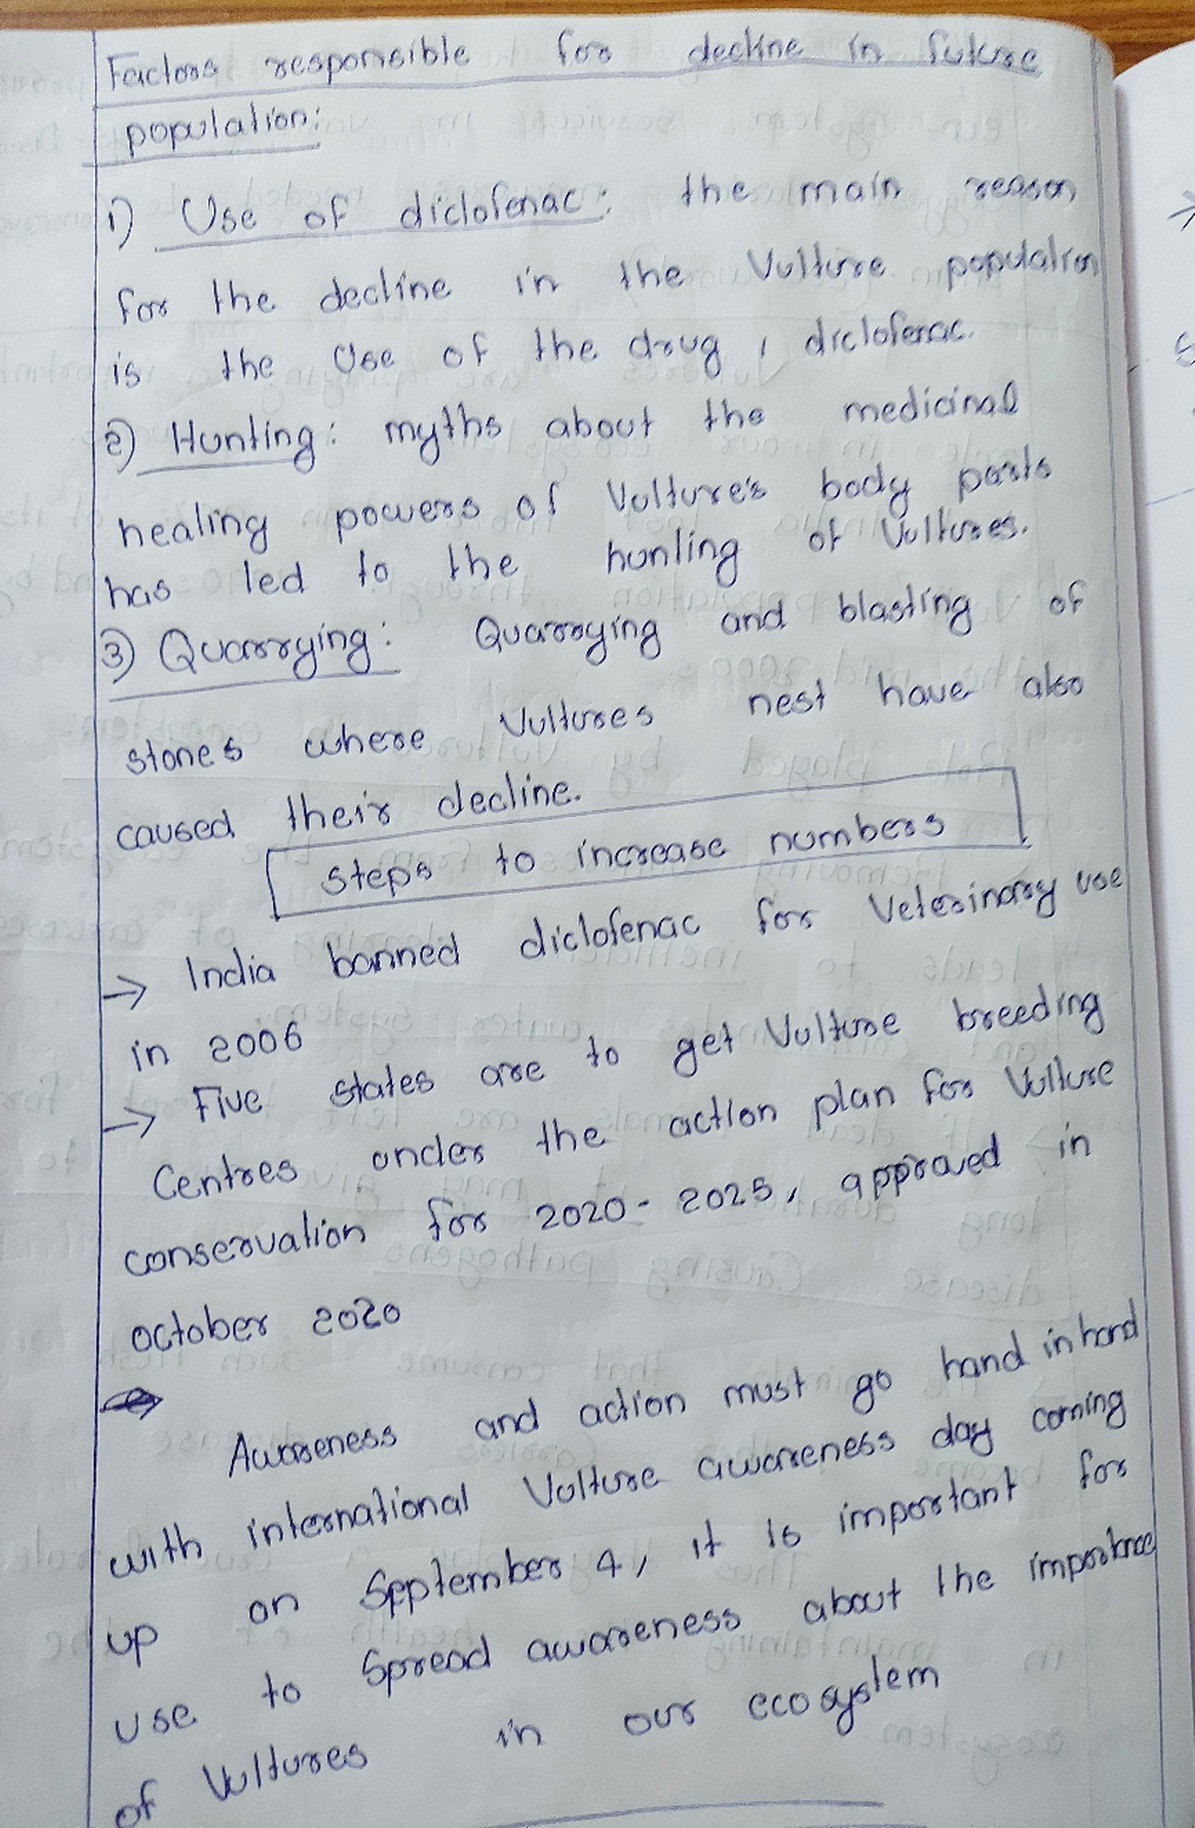 Factors responsible for decline in future
population:
1) Use of diclofenac: the main reason
for the decline in the Vulture population
is the Use of the drug, diclofenac.
2) Hunting: myths about the medicinal
healing powers of Vulture's body parts
has led to the hunting of Vultures.
3) Quarrying: Quarrying and blasting of
stones where Vultures nest have also
caused their decline.
Steps to increase numbers
→ India banned diclofenac for Veterinary use
in 2006
→ Five states are to get Vulture breeding
Centres under the action plan for Vulture
conservation for 2020-2025, approved in
october 2020
Awareness and action must go hand in hand
with international Vulture awareness day coming
up on September 4, it is important for
use to spread awareness about the importance
of Vultures in our ecosystem